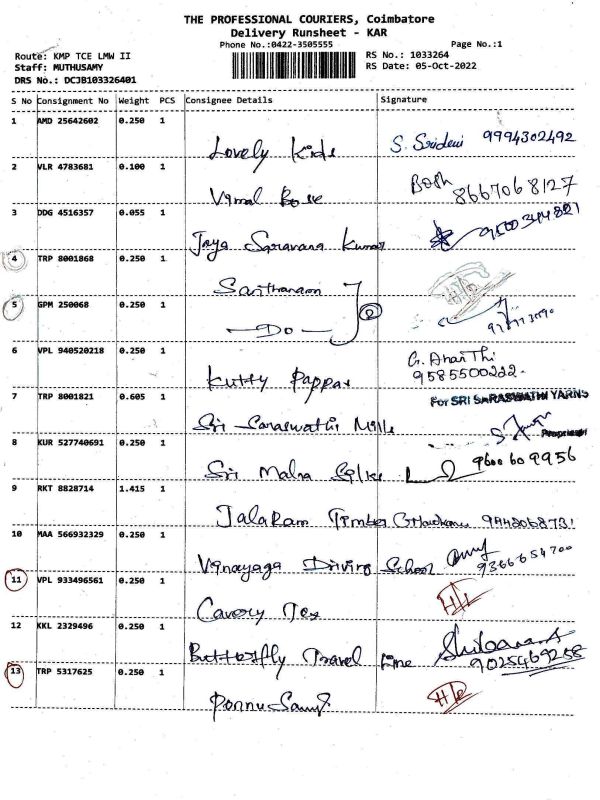 THE PROFESSIONAL COURIERS, Coimbatore
Delivery Runsheet - KAR
Phone No.:0422-3505555
Page No.:1
Route: KMP TCE LMW II
RS No.: 1033264
Staff: MUTHUSAMY
RS Date: 05-Oct-2022
DRS No.: DCJB103326401
S No Consignment No Weight PCS Consignee Details Signature
1 AMD 25642602 0.250 1
Lovely Kids S. Sridevi 9994302492
2 VLR 4783681 0.100 1
Vimal Bose Bosh 8667068127
3 DDG 4516357 0.055 1
Jaya Saravana Kumar
4 TRP 8001868 0.250 1
Santhanam
5 GPM 250068 0.250 1
—Do— 2
6 VPL 940520218 0.250 1
Kutty Pappas G. AnanThi
9585500222.
7 TRP 8001821 0.605 1
For SRI SARASWATHI YARNS
Sri Saraswathi Mills
Proprietor
8 KUR 527740691 0.250 1
Sri Maha Silks 9600609956
9 RKT 8828714 1.415 1
Jalaram Timber 9442068731
10 MAA 566932329 0.250 1
Vinayaga Driving School 9366654700
11 VPL 933496561 0.250 1
Cavery Tex
12 KKL 2329496 0.250 1
Butterfly Travel Line
9025469258
13 TRP 5317625 0.250 1
Ponnusamy